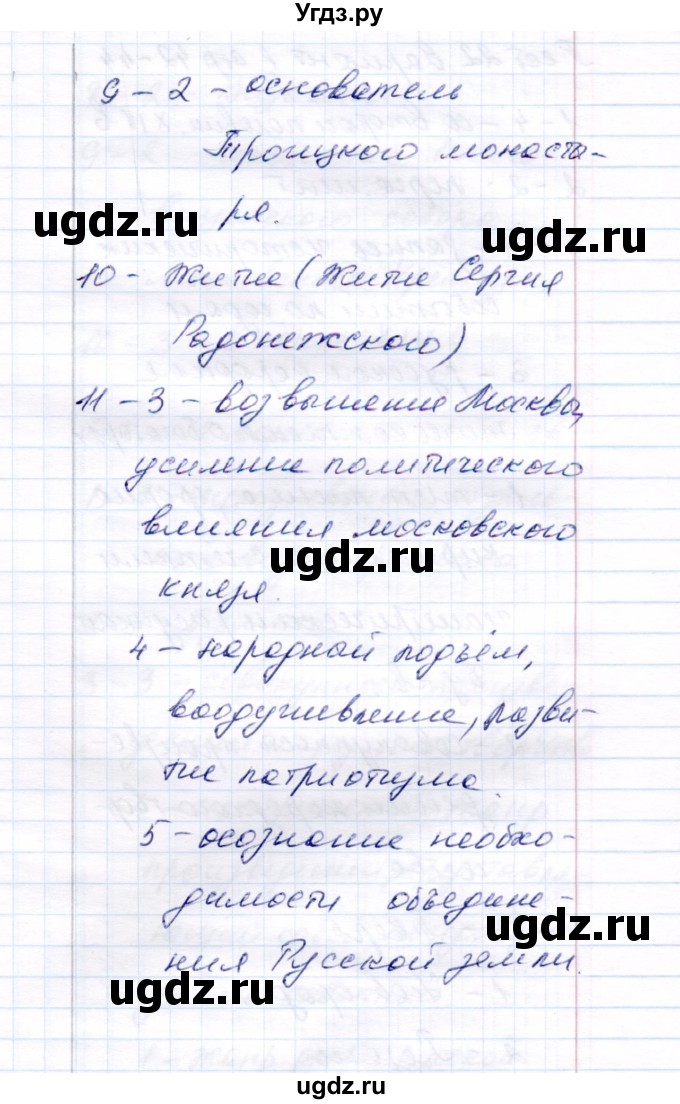 Угдз.ру
9 – 2 – основатель
Троицкого монаста-
ря.
ugdz.ru ugdz.ru
10 – Житие (Житие Сергия
Радонежского)
11 – 3 – возвышение Москвы,
усиление политического
ugdz.ru
влияния московского
ugdz.ru
князя.
4 – народный подъём,
ugdz.ru
воодушевление, разви-
тие патриотизма.
ugdz.ru
5 – осознание необхо-
димости объедине-
ugdz.ru
ния Русской земли.
ugdz.ru
ugdz.ru